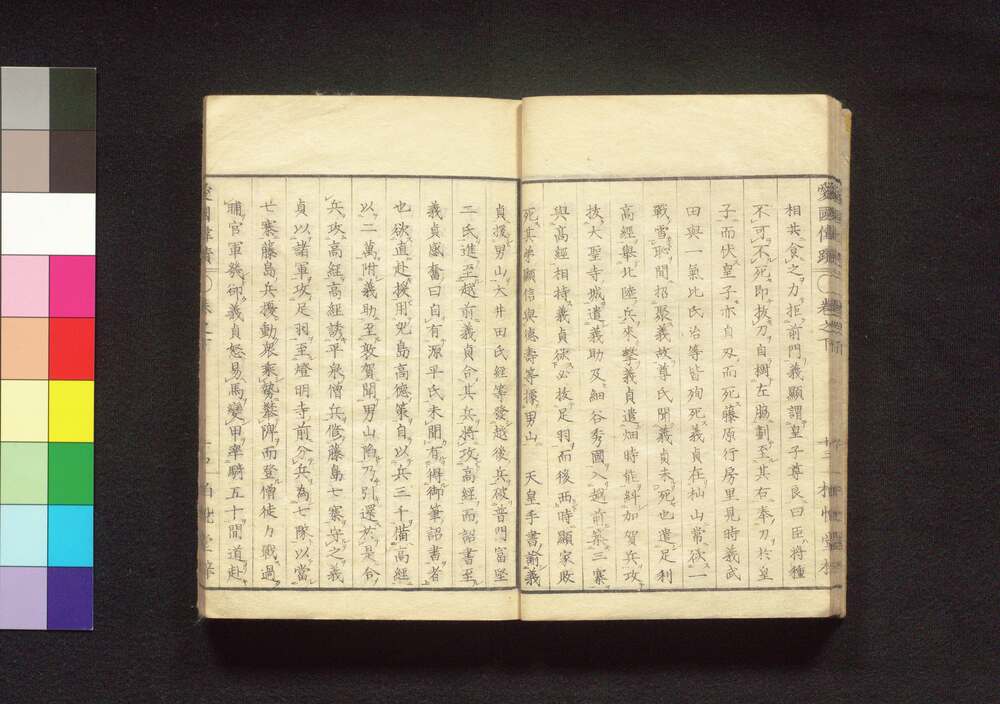 愛國偉蹟
卷之下
相共食之力拒前門義顯謂皇子尊良曰臣將種
不可不死即拔刀自擱左脇劃至其右奉刀於皇
子而伏皇子亦自刃而死藤原行房里見時義武
田與一氣比氏治等皆殉死義貞在杣山常欲一
戰雪恥聞招聚義故尊氏聞義貞未死也遣足利
高經擧北陸兵來擊義貞遣畑時能糾加賀兵攻
拔大聖寺城遣義助及細谷秀國入越前築三寨
與高經相持義貞欲必拔足羽而後西時顯家敗
死其弟顯信與德壽等據男山 天皇手書諭義
貞援男山大井田氏經等發越後兵破普門富堅
二氏進至越前義貞合其兵將攻高經而詔書至
義貞感奮曰自有源平氏未聞有得御筆詔書者
也欲直赴援用兒島高德策自以兵三千備高經
以二萬附義助至敦賀聞男山陷乃引還於是合
兵攻高經高經誘平泉僧兵修藤島七寨守之義
貞以諸軍攻足羽至燈明寺前分兵為七隊以當
七寨藤島兵擾動衆乘勢裝陴而登僧徒力戰過
晡官軍幾卻義貞怒易馬變甲率騎五十間道赴